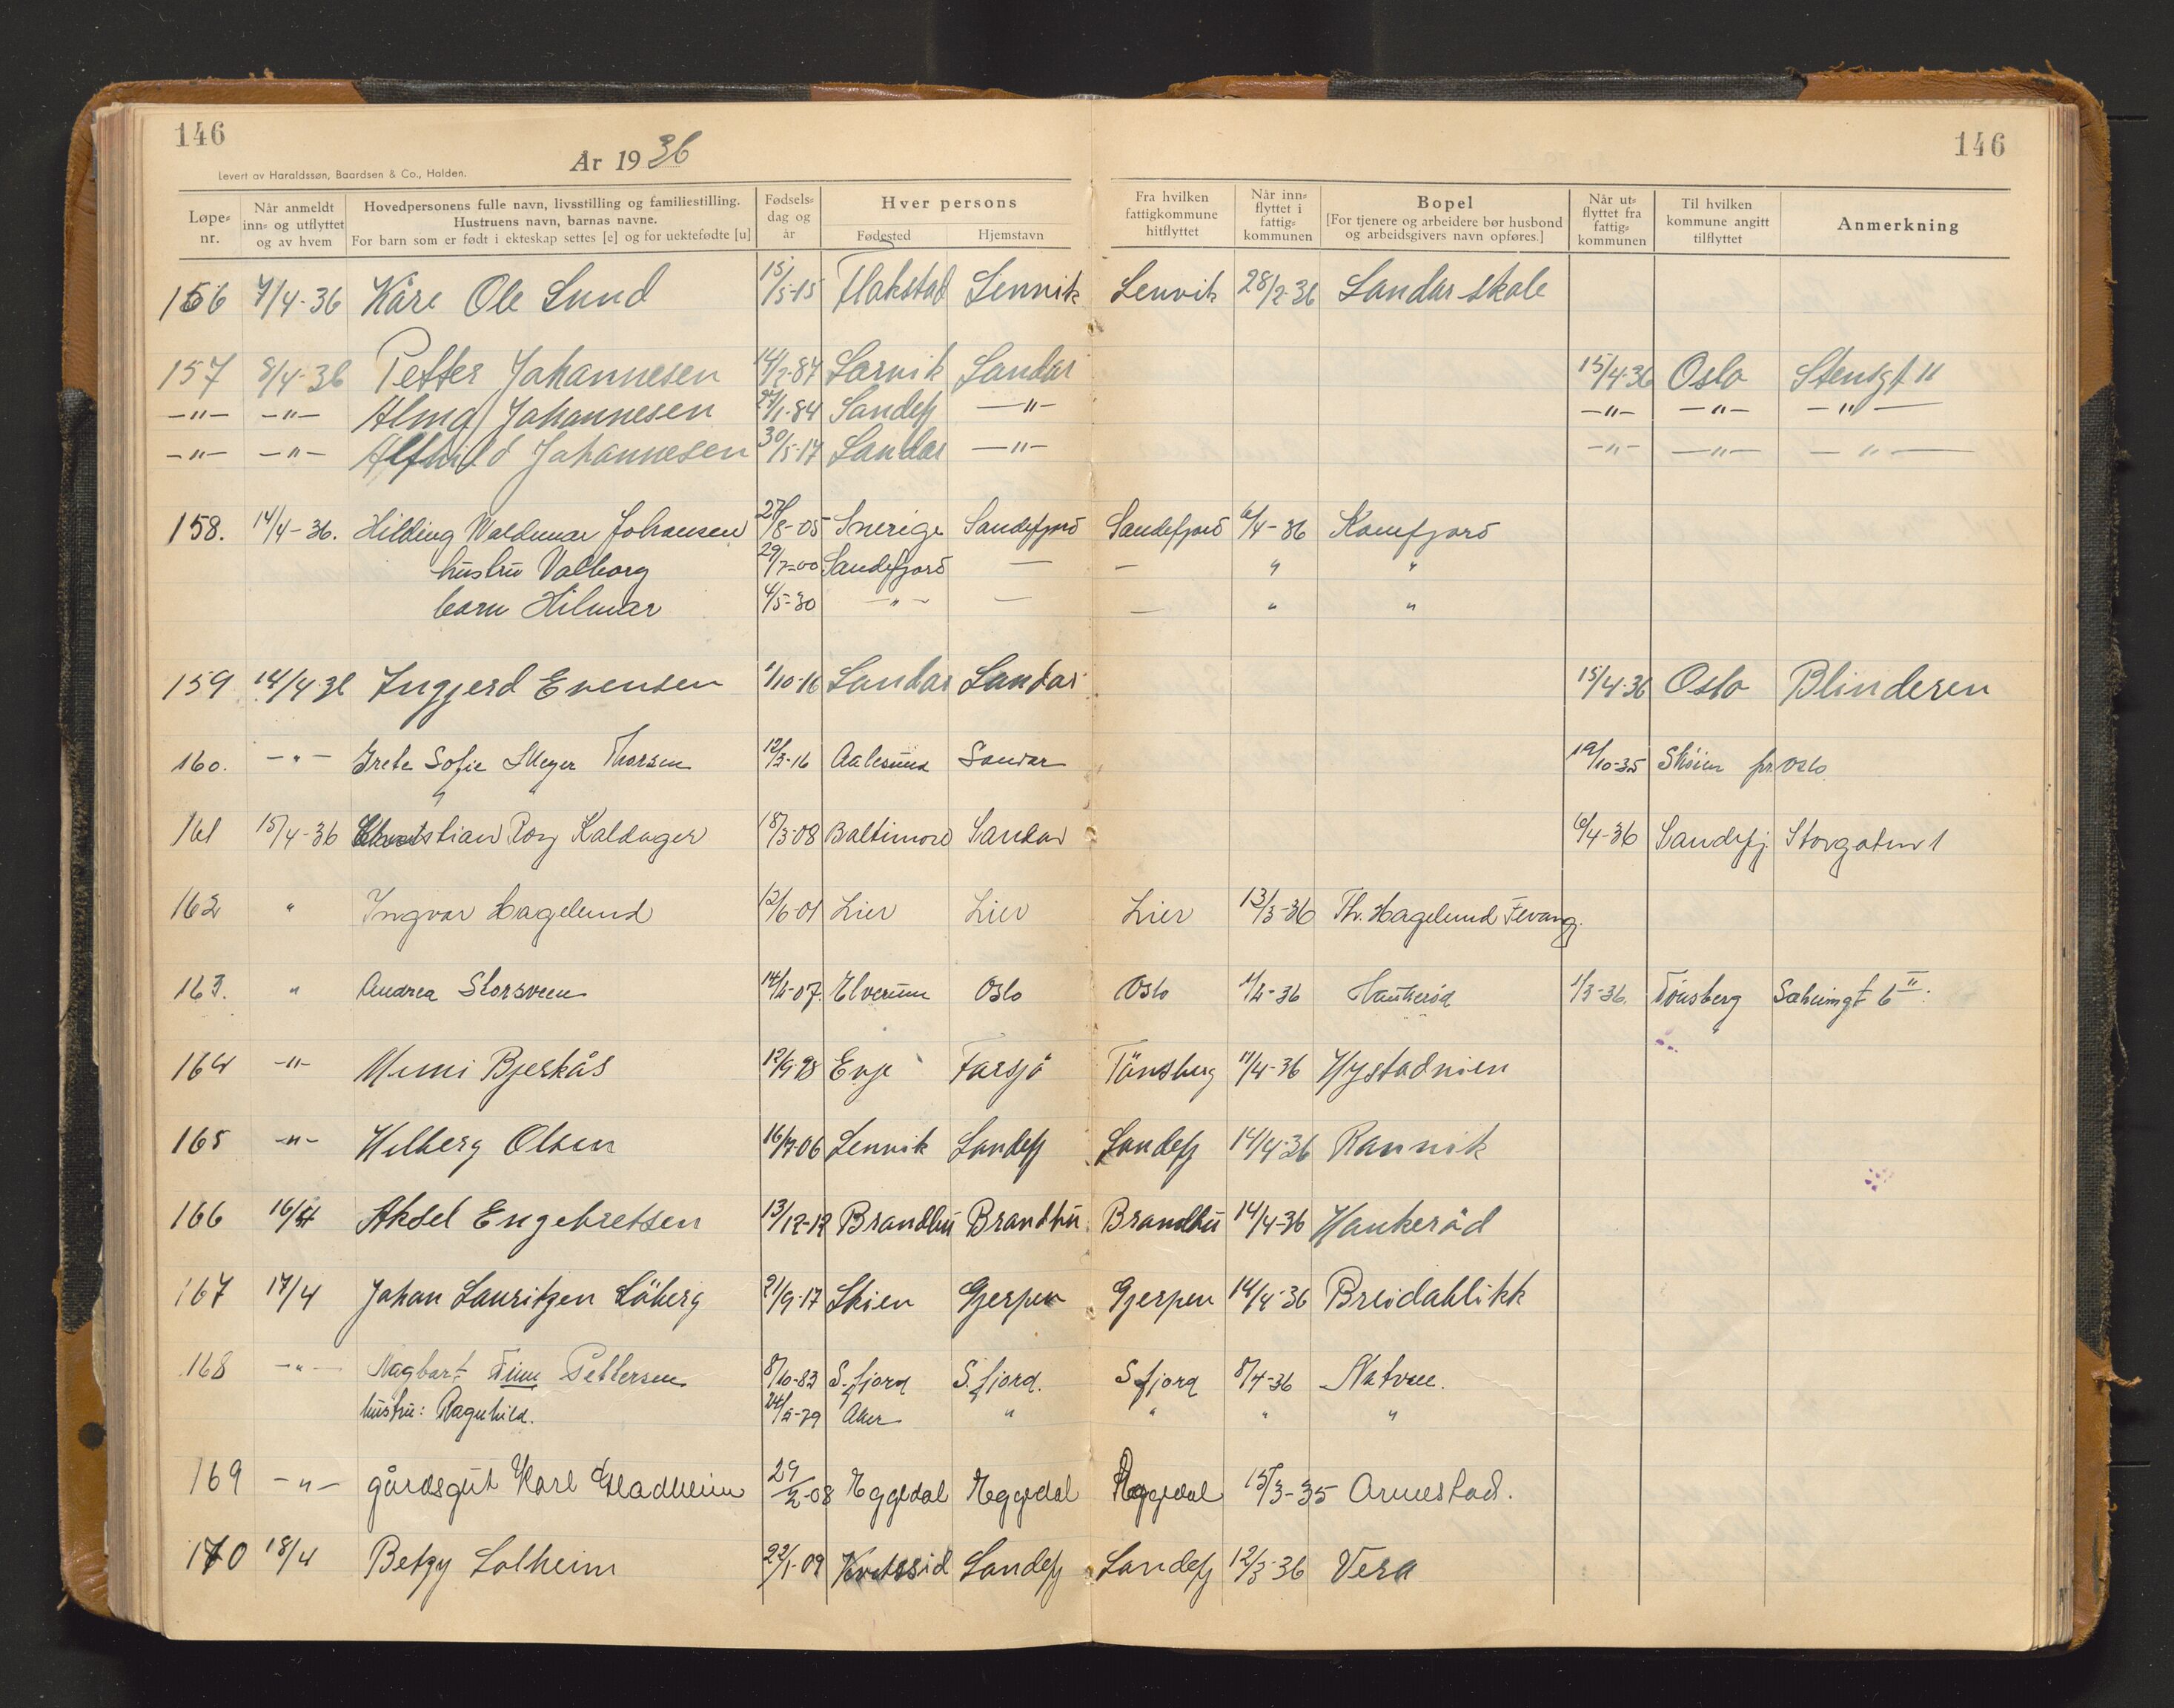 146
146
År 1936
Levert av Haraldssøn, Baardsen & Co., Halden.
Løpe-nr. Når anmeldt inn- og utflyttet og av hvem Hovedpersonens fulle navn, livsstilling og familiestilling. Hustruens navn, barnas navne. For barn som er født i ekteskap settes [e] og for uektefødte [u] Fødsels-dag og år Hver persons Fødested Hjemstavn Fra hvilken fattigkommune hitflyttet Når inn-flyttet i fattig-kommunen Bopel [For tjenere og arbeidere bør husbond og arbeidsgivers navn opføres.] Når ut-flyttet fra fattig-kommunen Til hvilken kommune angitt tilflyttet Anmerkning
156 7/4-36 Kåre Ole Lund 15/5-15 Flakstad Lenvik Lenvik 28/2-36 Sandar skole
157 8/4-36 Petter Johannesen 14/2-87 Larvik Sandar 15/4-36 Oslo Stensgt 11
-"- -"- Alma Johannesen 27/1-84 Sandefj -"- -"- -"- -"-
-"- -"- Alfhild Johannesen 30/5-17 Sandar -"- -"- -"- -"-
158. 14/4-36. Hilding Valdemar Johansen 27/8-05 Sverige Sandefjord Sandefjord 6/4-36 Kamfjord
hustru Valborg 29/7-00 Sandefjord — — " "
barn Hilmar 4/5-30 -"- — — " "
159 14/4-36 Ingjerd Evensen 1/10-16 Sandar Sandar 15/4-36 Oslo Blinderen
160. -"- Grete Sofie Meyer Thorsen 12/3-16 Aalesund Sandar 19/10-35 Skøien pr. Oslo
161 15/4-36 Christian Roy Kaldager 18/3-08 Baltimore Sandar 6/4-36 Sandefj Storgaten 1
162 " Ingvar Hagelund 12/6-01 Lier Lier Lier 13/3-36 Th. Hagelund Fevang.
163. " Andrea Storsveen 14/5-07. Elverum Oslo Oslo 1/2-36 Haukerød 1/3-36. Tønsberg Sæheimgt 6 II.
164 -"- Mimi Bjerkås 12/9-98 Evje Farsjø Tönsberg 17/4-36 Hystadveien
165 -"- Helberg Olsen 16/7-06 Lenvik Sandefj Sandefj 14/4-36 Ranvik
166 16/4 Aksel Engebretsen 13/12-12 Brandbu Brandbu Brandbu 14/4-36 Haukeröd
167 17/4 Johan Lauritzen Löberg 21/9-17 Skien Gjerpen Gjerpen 14/4-36 Breidablikk
168 -"- Dagbart Finn Pettersen 8/10-83 S.fjord S.fjord. S fjord 8/4-36 Natvee.
hustru: Ragnhild. 24/5-79 Aker " " " "
169 -"- gårdsgut Karl Gladheim 29/2-08 Eggedal Eggedal Eggedal 15/3-35 Arnestad.
170 18/4 Betzy Solheim 22/1-09 Sandefj Sandefj 12/3-36 Vera